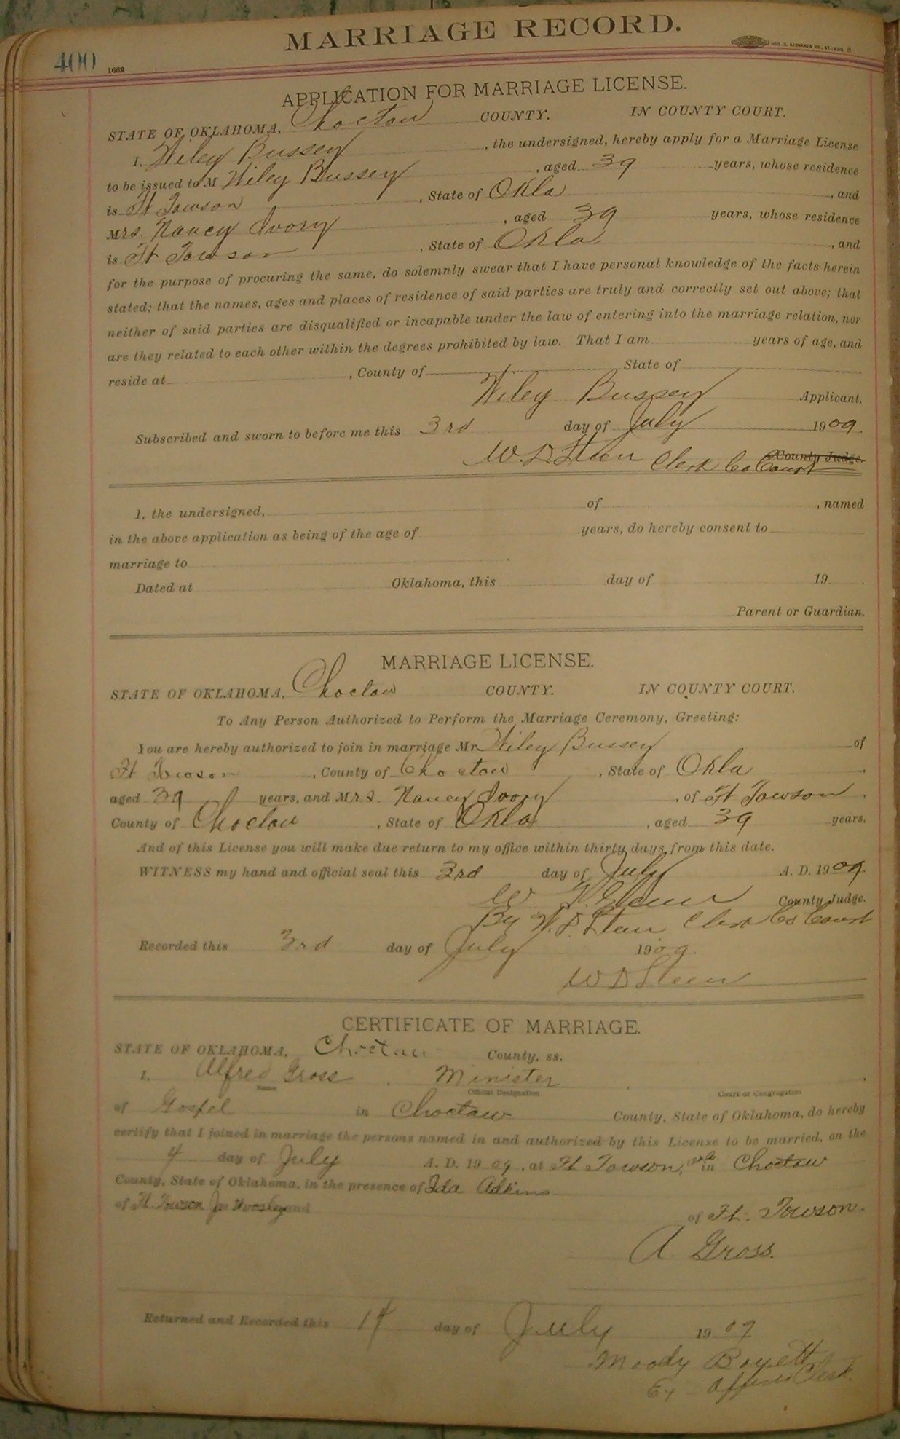 MARRIAGE RECORD.
400
APPLICATION FOR MARRIAGE LICENSE.
STATE OF OKLAHOMA, Choctaw COUNTY. IN COUNTY COURT.
I, Wiley Bussey, the undersigned, hereby apply for a Marriage License
to be issued to M Wiley Bussey, aged 39 years, whose residence
is Ft Towson, State of Okla, and
Mrs. Nancy Ivory, aged 39 years, whose residence
is Ft Towson, State of Okla, and
for the purpose of procuring the same, do solemnly swear that I have personal knowledge of the facts herein
stated; that the names, ages and places of residence of said parties are truly and correctly set out above; that
neither of said parties are disqualified or incapable under the law of entering into the marriage relation, nor
are they related to each other within the degrees prohibited by law. That I am years of age, and
reside at , County of State of
Wiley Bussey Applicant.
Subscribed and sworn to before me this 3rd day of July 1909.
W. D. Steen Clerk Co Court County Judge.
I, the undersigned, of , named
in the above application as being of the age of years, do hereby consent to
marriage to
Dated at Oklahoma, this day of 19
Parent or Guardian.
MARRIAGE LICENSE.
STATE OF OKLAHOMA, Choctaw COUNTY. IN COUNTY COURT.
To Any Person Authorized to Perform the Marriage Ceremony, Greeting:
You are hereby authorized to join in marriage Mr. Wiley Bussey of
Ft Towson, County of Choctaw, State of Okla
aged 39 years, and Mrs. Nancy Ivory, of Ft Towson
County of Choctaw, State of Okla, aged 39 years.
And of this License you will make due return to my office within thirty days from this date.
WITNESS my hand and official seal this 3rd day of July A. D. 1909
W County Judge.
By W. D. Steen Clerk Co Court
Recorded this 3rd day of July 1909.
W D Steen
CERTIFICATE OF MARRIAGE.
STATE OF OKLAHOMA, Choctaw County, ss.
I, Alfred Gross Minister
Name Official Designation Church or Congregation
of Gospel in Choctaw County, State of Oklahoma, do hereby
certify that I joined in marriage the persons named in and authorized by this License to be married, on the
4 day of July A. D. 1909, at Ft Towson, in Choctaw
County, State of Oklahoma, in the presence of Ida Adkins
of Ft Towson and of Ft. Towson.
A Gross.
Returned and Recorded this 14 day of July 1909
Moody Boyett
Clerk.